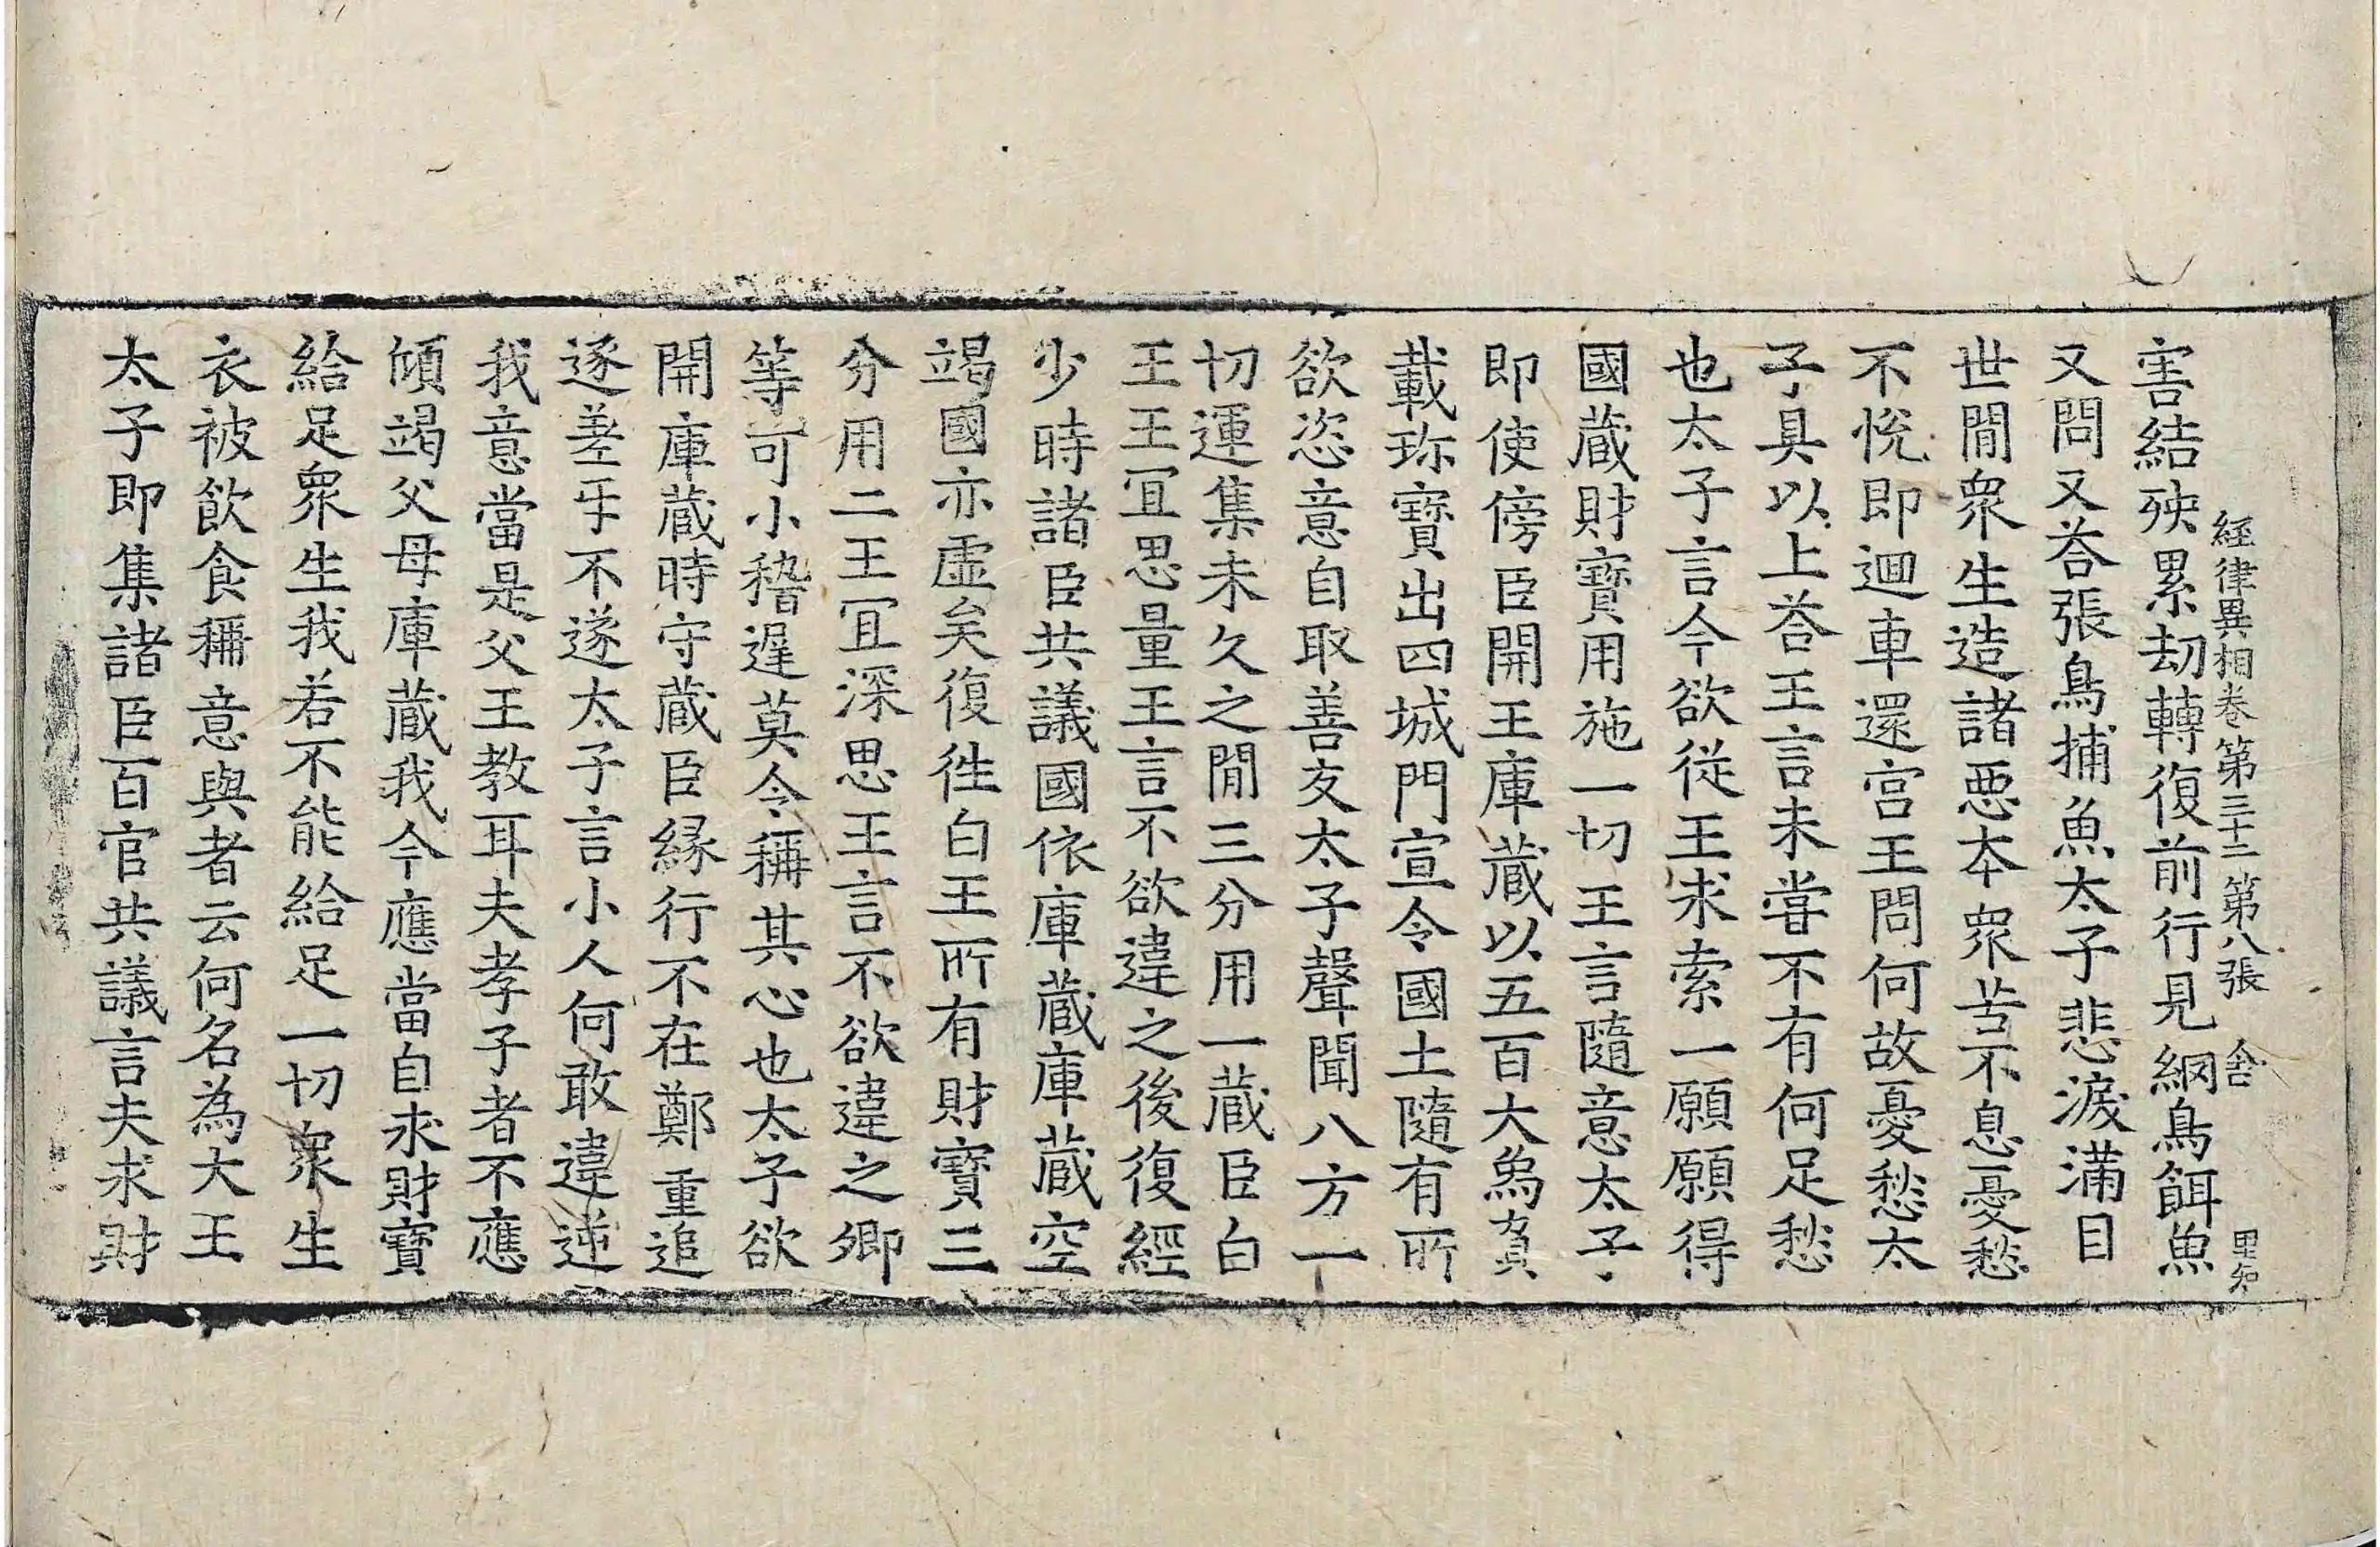 經律異相卷第三十二 第八張 舍
害結殃累劫轉復前行見網鳥餌魚
又問又荅張鳥捕魚太子悲淚滿目
世閒衆生造諸惡本衆苦不息憂愁
不悅即迴車還宮王問何故憂愁太
子具以上荅王言未嘗不有何足愁
也太子言今欲從王求索一願願得
國蔵財寶用施一切王言隨意太子
即使傍臣開王庫蔵以五百大象負
載珎寶出四城門宣令國土隨有所
欲恣意自取善友太子聲聞八方一
切運集未久之閒三分用一蔵臣白
王王冝思量王言不欲違之後復經
少時諸臣共議國依庫蔵庫蔵空
竭國亦虛矣復徃白王所有財寶三
分用二王冝深思王言不欲違之卿
等可小稽遲莫令稱其心也太子欲
開庫蔵時守蔵臣緣行不在鄭重追
逐差互不遂太子言小人何敢違逆
我意當是父王教耳夫孝子者不應
傾竭父母庫蔵我今應當自求財寶
給足衆生我若不能給足一切衆生
衣被飲食稱意與者云何名為大王
太子即集諸臣百官共議言夫求財